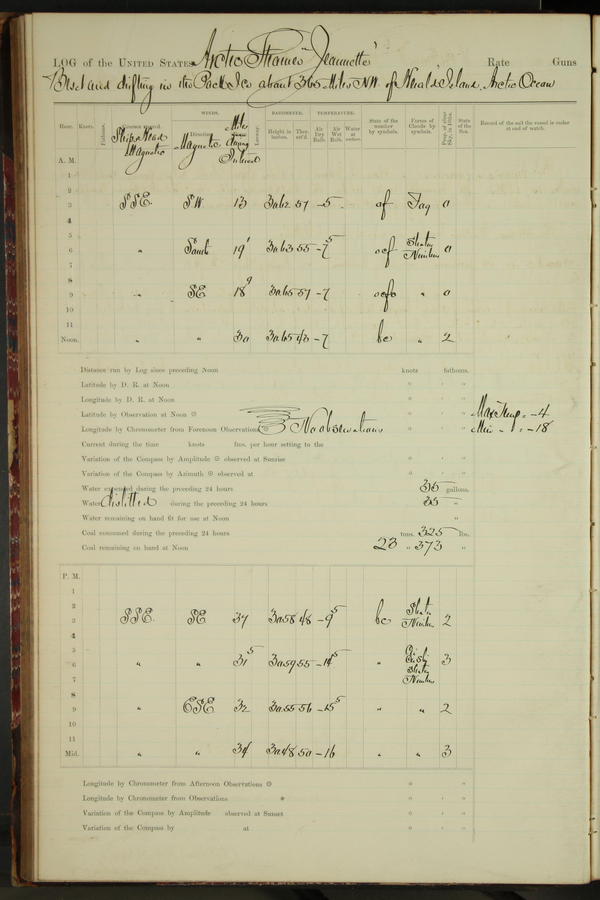 LOG of the UNITED STATES Arctic Steamer "Jeannette" Rate Guns
Beset and drifting in the Pack Ice about 365 Miles NW of Herald Island, Arctic Ocean
WINDS. BAROMETER. TEMPERATURE.
Hour. Knots. Fathoms. Courses steered. Ship's Head Magnetic Direction Magnetic Miles during Interval Leeway. Height in inches. Ther. att'd. Air Dry Bulb. Air Wet Bulb. Water at surface. State of the weather by symbols. Forms of Clouds by symbols. Prop. of clear Sky, in 10ths. State of the Sea. Record of the sail the vessel is under at end of watch.
A. M.
1
2
3 SSE. SW 13 30.62 57 -5 of Fog 0
4
5
6 " South 19 30.63 55 -7.5 ocf Stratus Nimbus 0
7
8
9 " SE 18 30.65 57 -7 " 0
10
11
Noon. " " 30 30.65 43 -7 bc " 2
Distance run by Log since preceding Noon knots fathoms.
Latitude by D. R. at Noon ° ' "
Longitude by D. R. at Noon ° ' "
Latitude by Observation at Noon ° ' " Max Temp. -4
Longitude by Chronometer from Forenoon Observations No observations ° ' " Min " -18
Current during the time knots fms. per hour setting to the
Variation of the Compass by Amplitude observed at Sunrise ° ' "
Variation of the Compass by Azimuth observed at ° ' "
Water expended during the preceding 24 hours 36 gallons.
Water distilled during the preceding 24 hours 35 "
Water remaining on hand fit for use at Noon "
Coal consumed during the preceding 24 hours tons. 325 lbs.
Coal remaining on hand at Noon 23 " 373 "
P. M.
1
2
3 SSE. SE 37 30.58 48 -9.5 bc Stratus Nimbus 2
4
5
6 " " 31.5 30.59 55 -14.5 " Cirrus Stratus Nimbus 3
7
8
9 " ESE 32 30.55 56 -15.5 " " 2
10
11
Mid. " " 34 30.48 50 -16 " " 3
Longitude by Chronometer from Afternoon Observations ° ' "
Longitude by Chronometer from Observations * ° ' "
Variation of the Compass by Amplitude observed at Sunset ° ' "
Variation of the Compass by at ° ' "